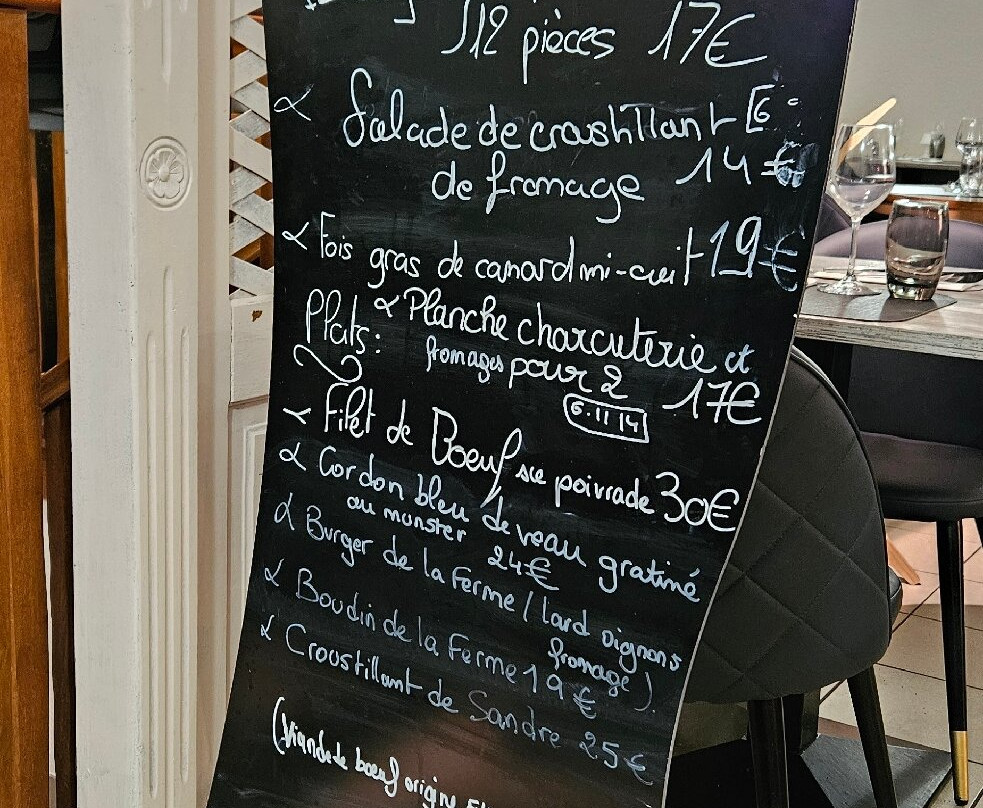 12 pièces 17€
Salade de croustillant [6
de fromage 14€
Fois gras de canard mi-cuit 19€
Planche charcuterie et
fromages pour 2 17€
6.11 14
Plats:
Filet de Boeuf sce poivrade 30€
Cordon bleu de veau gratiné
au munster 24€
Burger de la Ferme / lard oignons
fromage)
Boudin de la Ferme 19€
Croustillant de Sandre 25€
(Viande de boeuf origine